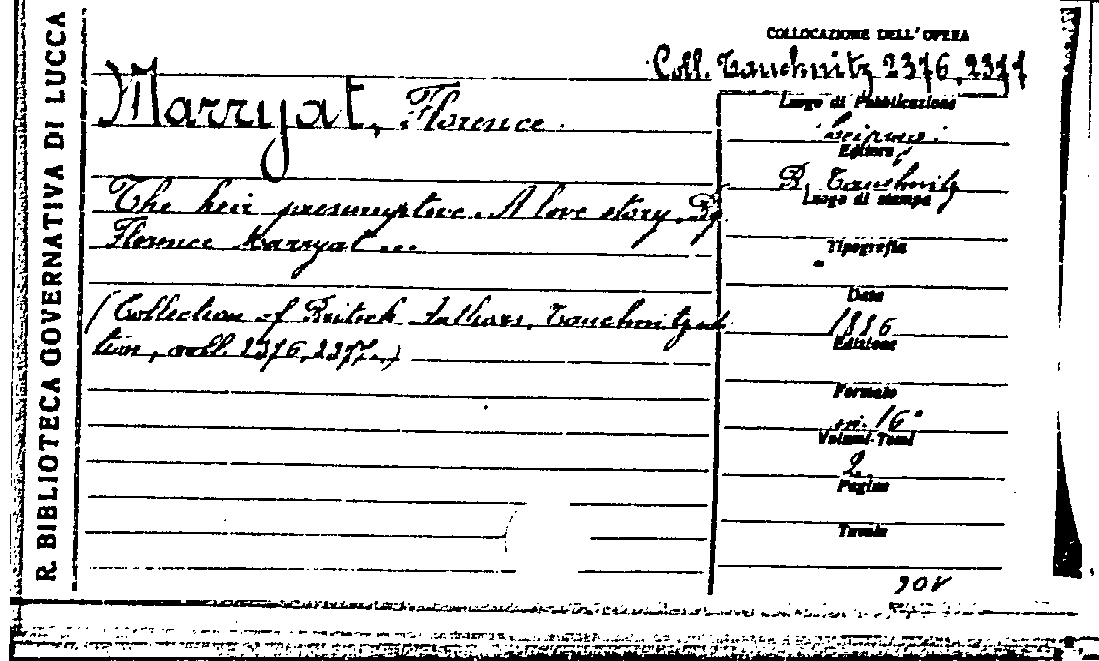 R. BIBLIOTECA GOVERNATIVA DI LUCCA
COLLOCAZIONE DELL'OPERA
Coll. Tauchnitz 2376, 2377
Marryat, Florence.
The heir presumptive. A love story. By
Florence Marryat ...
(Collection of British Authors, Tauchnitz edi
tion, voll. 2376, 2377.)
Luogo di Pubblicazione
Leipzig.
Editore
B. Tauchnitz
Luogo di stampa
Tipografia
Data
1886
Edizione
Formato
in. 16°
Volumi-Tomi
2.
Pagine
Tavole